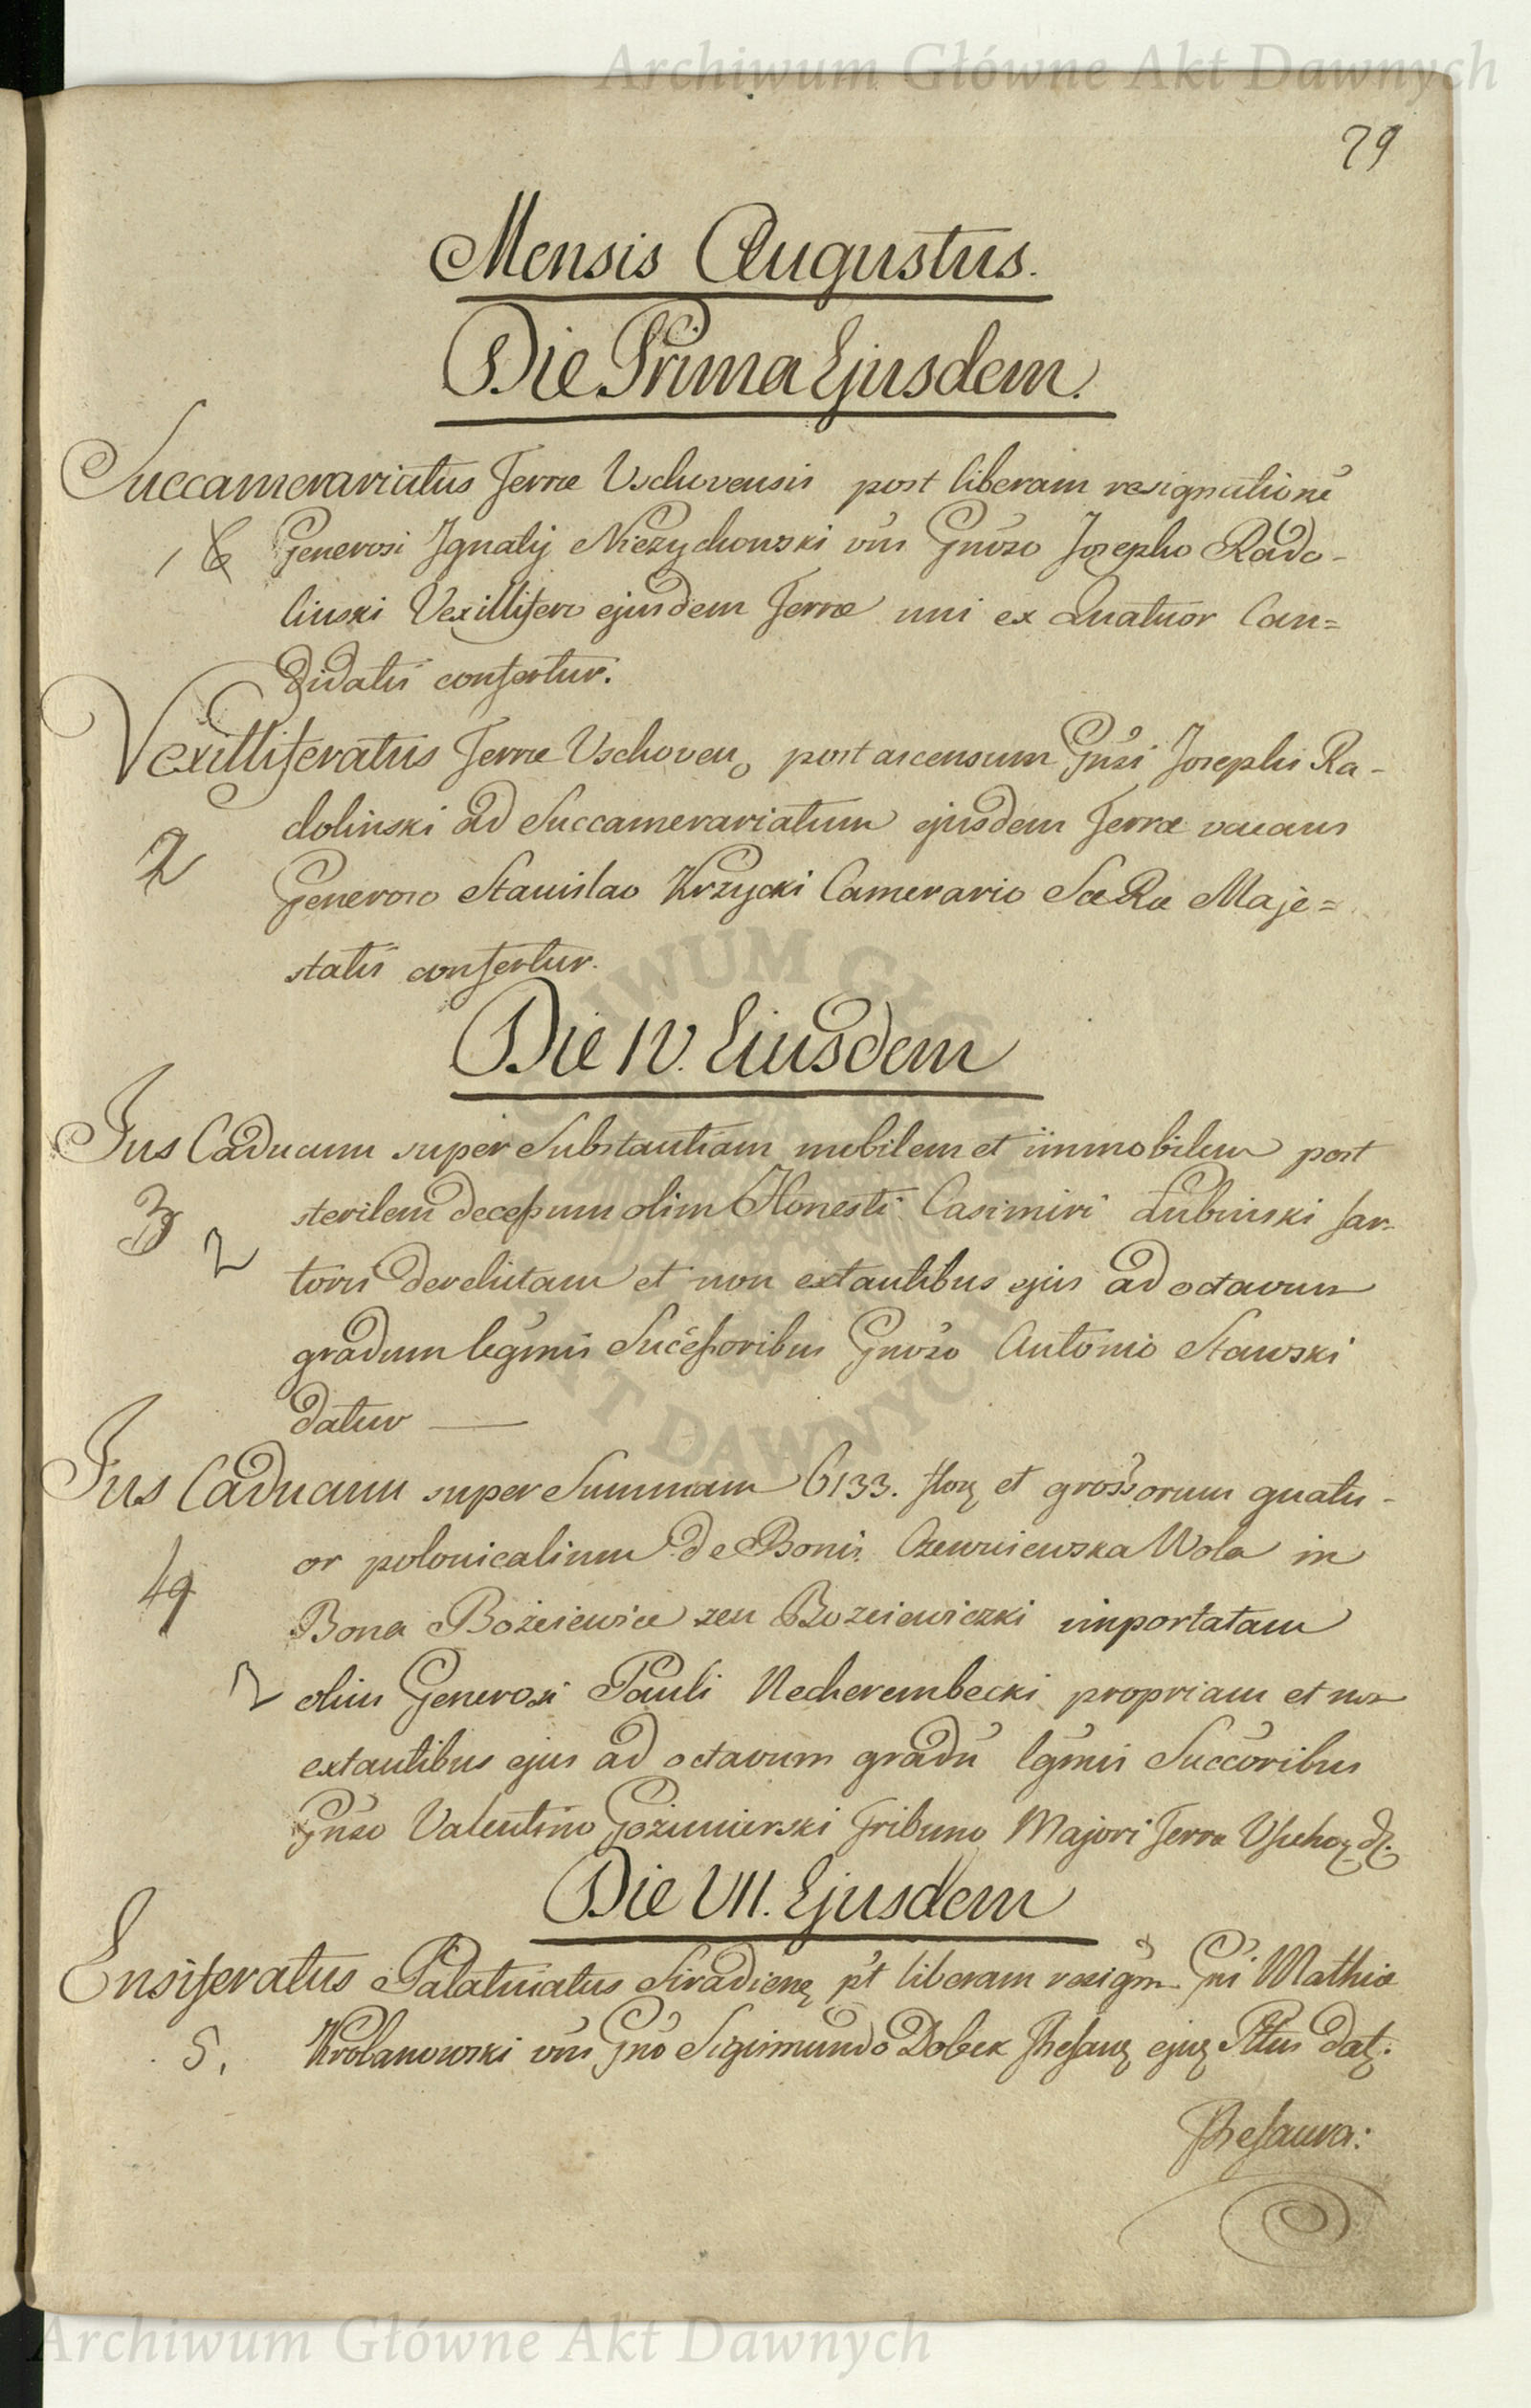 Archiwum Główne Akt Dawnych
79
Mensis Augustus.
Die Prima Ejusdem.
Succamerariatus Terræ Uschovensis post liberam resignationẽ
1 Generosi Ignatij Nieżychowski vris Gnŕoso Josepho Rado-
linski Vexillifero ejusdem Terræ uni ex Quatuor Can=
didatis confertur.
Vexilliferatus Terræ Uschoven, post ascensum Gnŕsi Josephi Ra-
dolinski ad Succamerariatum ejusdem Terræ vacans
2 Generoso Stanislao Krzycki Camerario Sæ Ræ Maje=
statis confertur.
Die IV. Ejusdem
Jus Caducum super Substantiam mobilem et immobilem post
3 2 sterilem decessum olim Honesti Casimiri Lubinski sar-
toris derelictam et non extantibus ejus ad octavum
gradum legmis Sucessoribus Gnŕoso Antonio Stawski
datur
Jus Caducum super Summam 6133. flor et grossorum quatu-
or polonicalium de Bonis Czewniewska Wola in
4 Bona Bożeiewice seu Bozeiewiczki importatam
2 olim Generosi Pauli Necherembecki propriam et non
extantibus ejus ad octavum gradũ lgmis Succoribus
Gnŕso Valentino Gozimirski Tribuno Majori Terræ Usscho d.
Die VII. Ejusdem
Ensiferatus Palatinatus Siradien, pt liberam resigm Gni Mathiæ
5. Krobanowski vris Gno Sigismundo Dobek Thesaur ejus Pttus dat.
Thesaura:
ARCHIWUM GŁÓWNE AKT DAWNYCH
Archiwum Główne Akt Dawnych